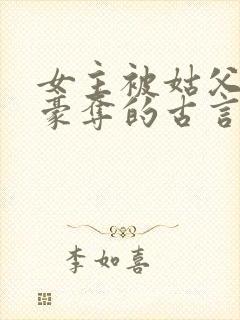 女主被姑父
豪夺的古言
李如喜